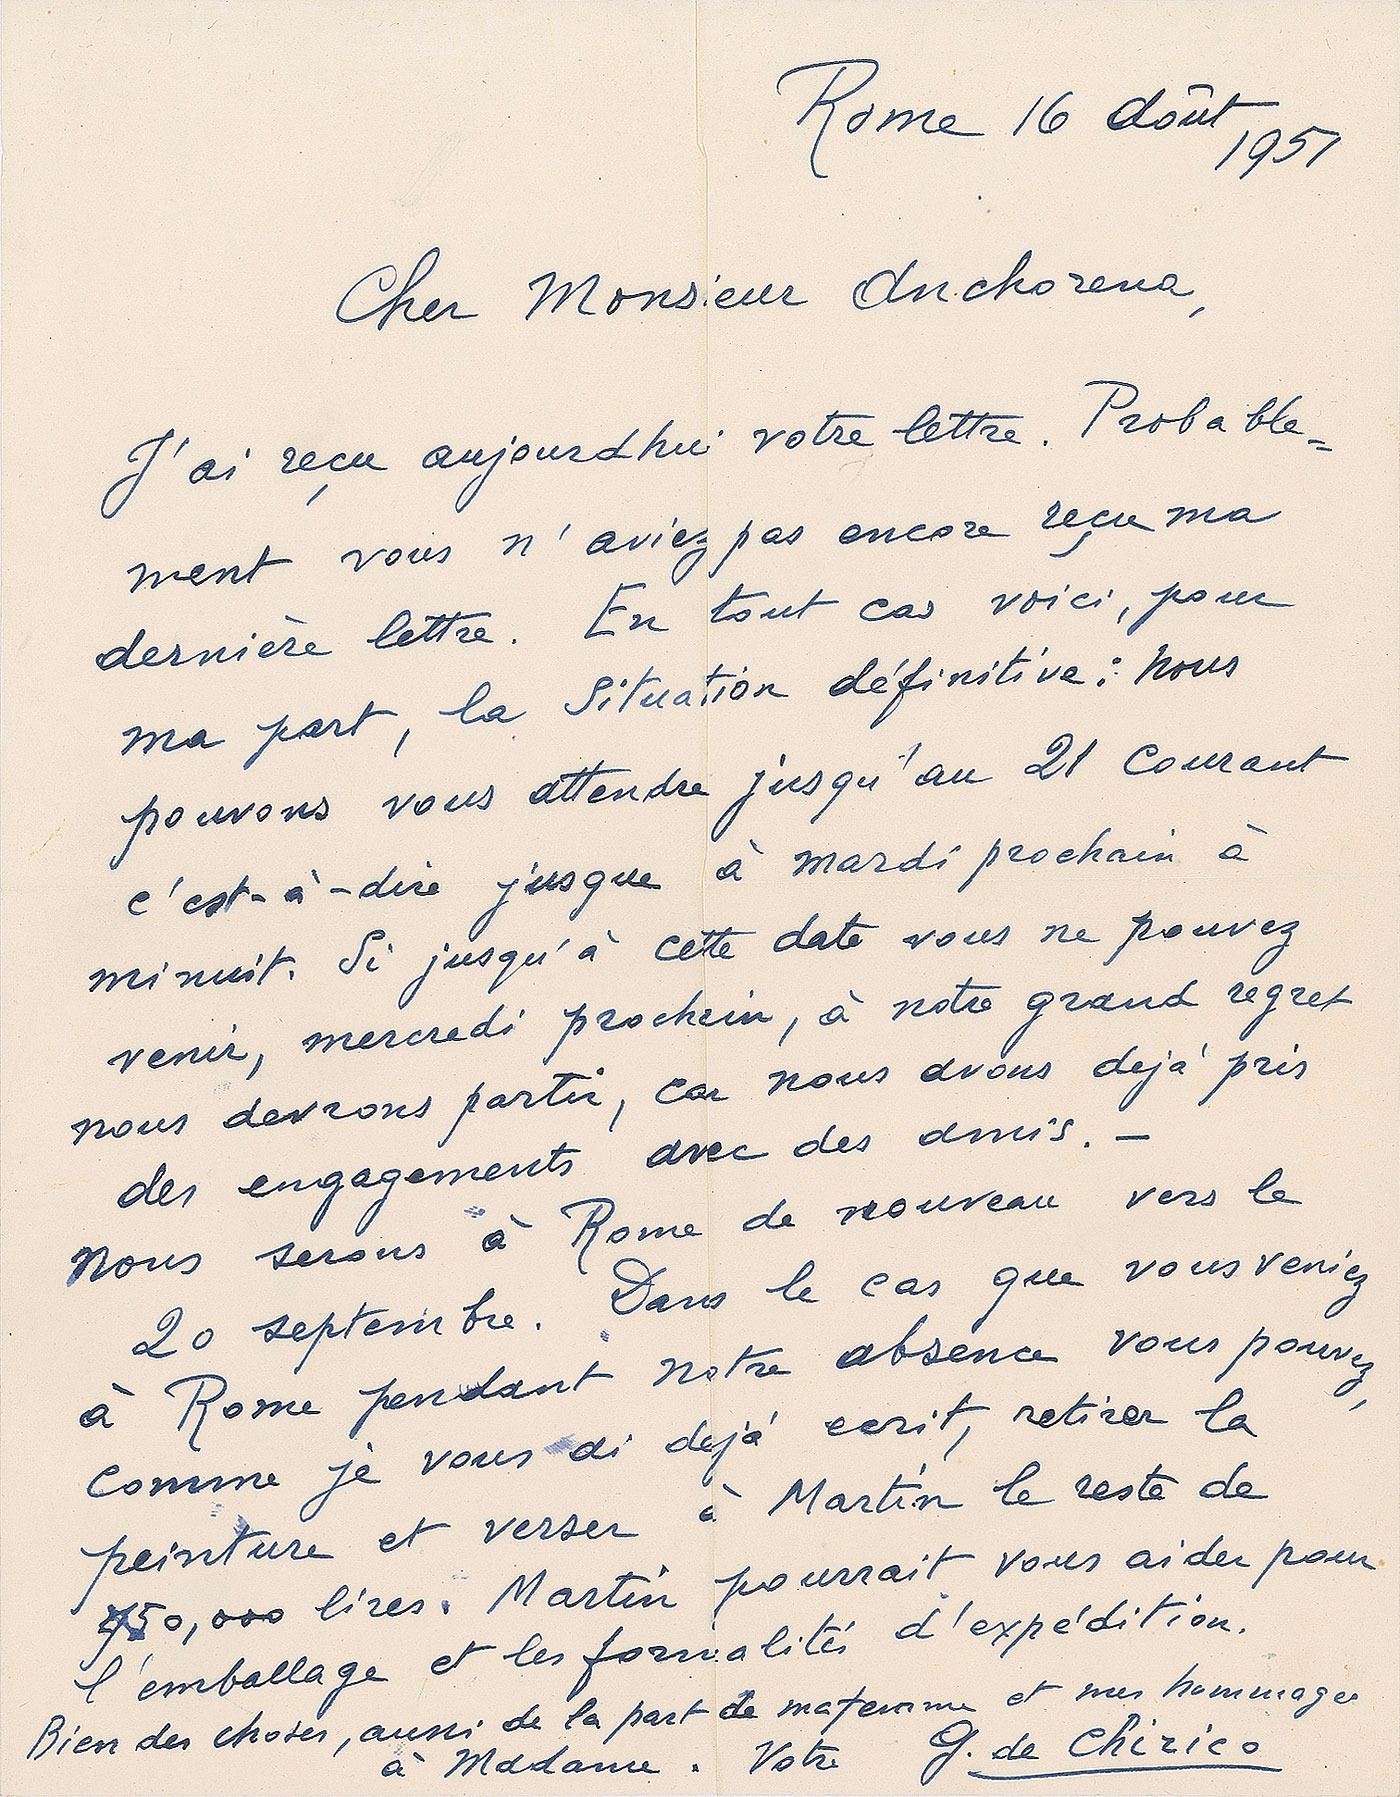 Rome 16 Août
1951
Cher Monsieur Anchorena,
J'ai reçu aujourdhui votre lettre. Probable=
ment vous n'aviez pas encore reçu ma
dernière lettre. En tout cas voici, pour
ma part, la situation définitive: nous
pouvons vous attendre jusqu'au 21 courant
c'est-à-dire jusque à mardi prochain à
minuit. Si jusqu'à cette date vous ne pouvez
venir, mercredi prochain, à notre grand regret
nous devrons partir, car nous avons dejà pris
des engagements avec des amis. —
Nous serons à Rome de nouveau vers le
20 septembre. Dans le cas que vous veniez
à Rome pendant notre absence vous pouvez,
comme je vous ai dejà ecrit, retirer la
peinture et verser à Martin le reste de
lires. Martin pourrait vous aider pour
l'emballage et les formalités d'expédition.
Bien des choses, aussi de la part de ma femme et mes hommages
à Madame. Votre G. de Chirico